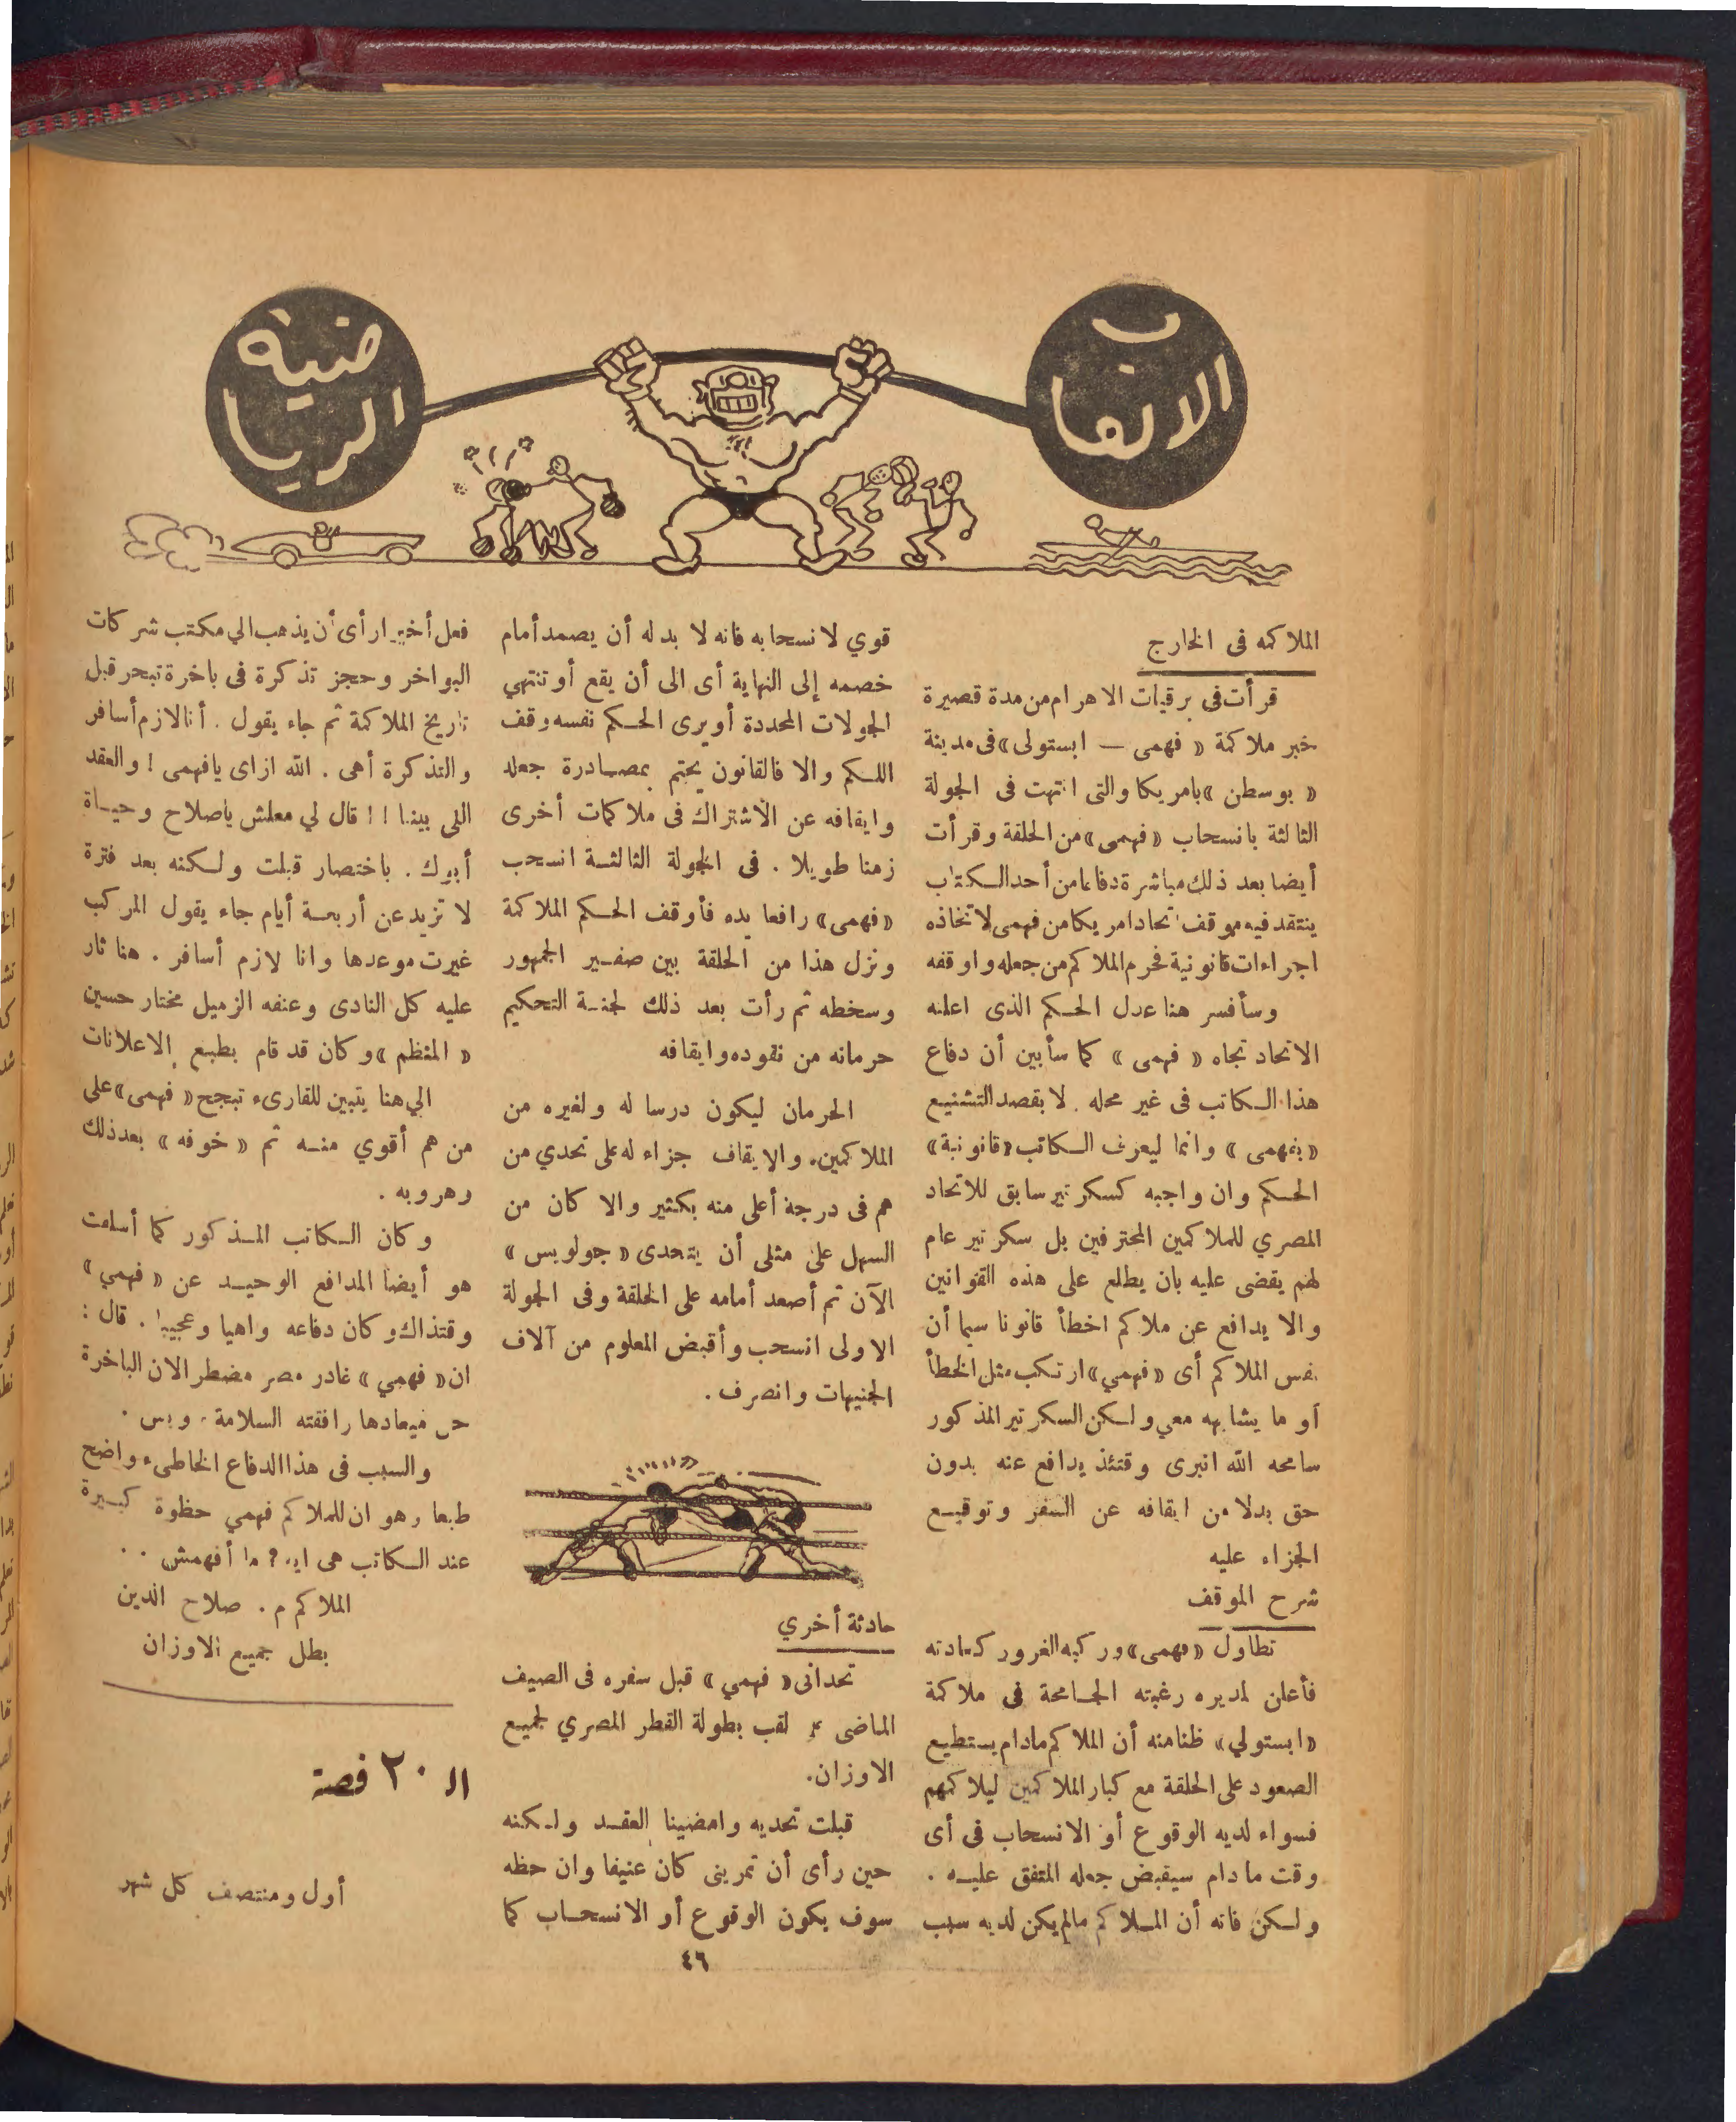 الالعاب
الرياضية
الملاكمه فى الخارج
قرأت فى برقيات الاهرام من مدة قصيرة
خبر ملاكمة « فهمى — ابستولى » فى مدينة
« بوسطن » بامريكا والتى انتهت فى الجولة
الثالثة بانسحاب « فهمى » من الحلقة وقرأت
أيضا بعد ذلك مباشرة دفاعا من أحد الكتاب
ينتقد فيه موقف اتحاد امريكا من فهمى لاتخاذه
اجراءات قانونية فحرم الملاكم من جعله واوقفه
وسأفسر هنا عدل الحكم الذى اعلنه
الاتحاد تجاه « فهمى » كما سأبين أن دفاع
هذا الكاتب فى غير محله . لا بقصد التشنيع
« بفهمى » وانما ليعرف الكاتب « قانونية »
الحكم وان واجبه كسكرتير سابق للاتحاد
المصري للملاكمين المحترفين بل سكرتير عام
لهم يقضى عليه بان يطلع على هذه القوانين
والا يدافع عن ملاكم اخطأ قانونا سيما أن
نفس الملاكم أى « فهمي » ارتكب مثل الخطأ
أو ما يشابهه معي ولكن السكرتير المذكور
سامحه الله انبرى وقتئذ يدافع عنه بدون
حق بدلا من ايقافه عن السفر وتوقيع
الجزاء عليه
شرح الموقف
تطاول « فهمى » وركبه الغرور كعادته
فأعلن لمديره رغبته الجامحة فى ملاكمة
« ابستولي » ظنا منه أن الملاكم مادام يستطيع
الصعود على الحلقة مع كبار الملاكمين ليلاكمهم
فسواء لديه الوقوع أو الانسحاب فى أى
وقت ما دام سيقبض جعله المتفق عليه .
ولكن فاته أن الملاكم مالم يكن لديه سبب
قوي لانسحابه فانه لا بد له أن يصمد أمام
خصمه إلى النهاية أى الى أن يقع أو تنتهي
الجولات المحددة أو يرى الحكم نفسه وقف
اللكم والا فالقانون يحتم بمصادرة جعله
وايقافه عن الاشتراك فى ملاكمات أخرى
زمنا طويلا . فى الجولة الثالثة انسحب
« فهمى » رافعا يده فأوقف الحكم الملاكمة
ونزل هذا من الحلقة بين صفير الجمهور
وسخطه ثم رأت بعد ذلك لجنة التحكيم
حرمانه من نقوده وايقافه
الحرمان ليكون درسا له ولغيره من
الملاكمين. والايقاف جزاء له على تحدي من
هم فى درجة أعلى منه بكثير والا كان من
السهل على مثلى أن يتحدى « جولويس »
الآن ثم أصعد أمامه على الحلقة وفى الجولة
الاولى انسحب وأقبض المعلوم من آلاف
الجنيهات وانصرف .
حادثة أخري
تحدانى « فهمي » قبل سفره فى الصيف
الماضى على لقب بطولة القطر المصري لجميع
الاوزان.
قبلت تحديه وامضينا العقد ولكنه
حين رأى أن تمرينى كان عنيفا وان حظه
سوف يكون الوقوع أو الانسحاب كما
فعل أخيرا رأى أن يذهب الي مكتب شركات
البواخر وحجز تذكرة فى باخرة تبحر قبل
تاريخ الملاكمة ثم جاء يقول . أنا لازم أسافر
والتذكرة أهى . الله ازاى يافهمى ! والعقد
اللى بينا !! قال لي معلش ياصلاح وحياة
أبوك . باختصار قبلت ولكنه بعد فترة
لا تزيد عن أربعة أيام جاء يقول المركب
غيرت موعدها وانا لازم أسافر . هنا ثار
عليه كل النادى وعنفه الزميل مختار حسين
« المنظم » وكان قد قام بطبع الاعلانات
الي هنا يتبين للقارىء تبجح « فهمى » على
من هم أقوي منه ثم « خوفه » بعد ذلك
وهروبه .
وكان الكاتب المذكور كما أسلفت
هو أيضا المدافع الوحيد عن « فهمي »
وقتذاك وكان دفاعه واهيا وعجيبا . قال :
ان « فهمي » غادر مصر مضطر الان الباخرة
حل ميعادها رافقته السلامة . وبس .
والسبب فى هذا الدفاع الخاطىء واضح
طبعا وهو ان للملاكم فهمي حظوة كبيرة
عند الكاتب هى ايه ? ما أفهمش . .
الملاكم م . صلاح الدين
بطل جميع الاوزان
الـ ٢٠ قصة
أول ومنتصف كل شهر
٤٦